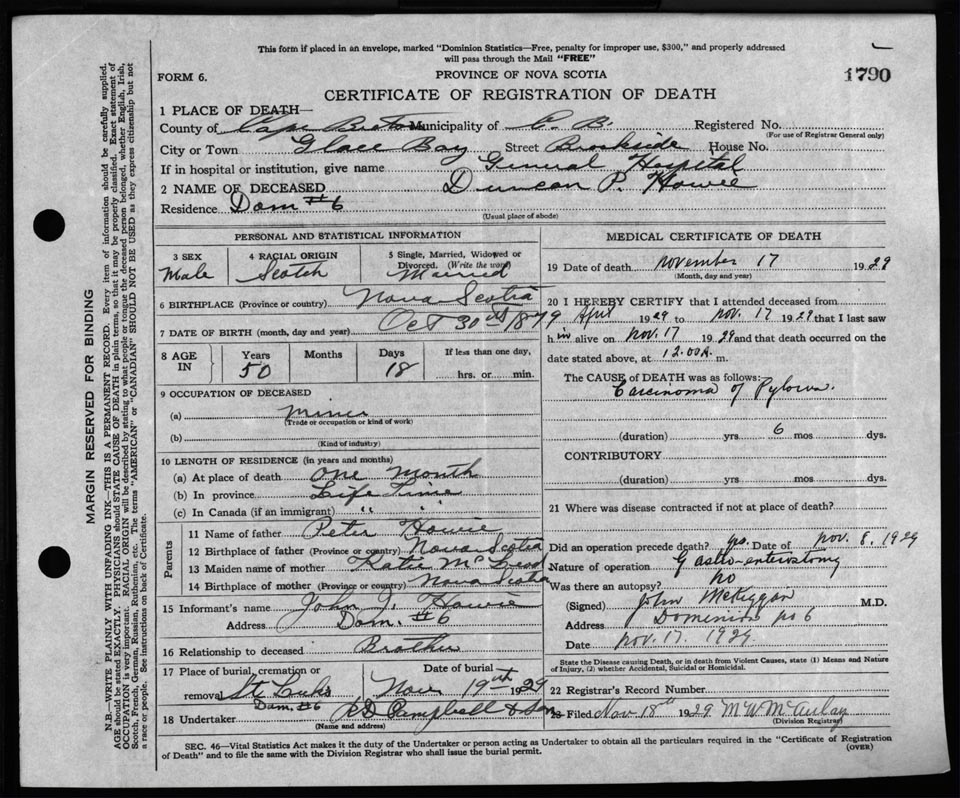 This form if placed in an envelope, marked "Dominion Statistics—Free, penalty for improper use, $300," and properly addressed
will pass through the Mail "FREE"
FORM 6.
PROVINCE OF NOVA SCOTIA
1790
CERTIFICATE OF REGISTRATION OF DEATH
1 PLACE OF DEATH—
County of Cape Breton Municipality of C. B. Registered No.
(For use of Registrar General only)
City or Town Glace Bay Street Brookside House No.
If in hospital or institution, give name General Hospital
2 NAME OF DECEASED Duncan P. Howie
Residence Dom #6
(Usual place of abode)
PERSONAL AND STATISTICAL INFORMATION
3 SEX Male
4 RACIAL ORIGIN Scotch
5 Single, Married, Widowed or Divorced. (Write the word) Married
6 BIRTHPLACE (Province or country) Nova Scotia
7 DATE OF BIRTH (month, day and year) Oct 30th 1879
8 AGE IN
Years Months Days If less than one day,
50 18 hrs. or min.
9 OCCUPATION OF DECEASED
(a) Miner
(Trade or occupation or kind of work)
(b)
(Kind of industry)
10 LENGTH OF RESIDENCE (in years and months)
(a) At place of death One Month
(b) In province Life Time
(c) In Canada (if an immigrant) " "
Parents
11 Name of father Peter Howie
12 Birthplace of father (Province or country) Nova Scotia
13 Maiden name of mother Katie McLeod
14 Birthplace of mother (Province or country) Nova Scotia
15 Informant's name John J. Howie
Address Dom. #6
16 Relationship to deceased Brother
17 Place of burial, cremation or removal St Luks Dom. #6
Date of burial Nov 19th 1929
18 Undertaker Campbell & Son
(Name and address)
MEDICAL CERTIFICATE OF DEATH
19 Date of death November 17 1929
(Month, day and year)
20 I HEREBY CERTIFY that I attended deceased from
April 1929 to Nov. 17 1929 that I last saw
him alive on Nov. 17 1929 and that death occurred on the
date stated above, at 12.00 A. m.
The CAUSE of DEATH was as follows:
Carcinoma of Pylorus.
(duration) yrs 6 mos dys.
CONTRIBUTORY
(duration) yrs mos dys.
21 Where was disease contracted if not at place of death?
Did an operation precede death? yes. Date of Nov. 8, 1929
Nature of operation Gastro-enterostomy
Was there an autopsy? no
(Signed) John McKiggan M.D.
Address Dominion no 6
Date Nov. 17. 1929
State the Disease causing Death, or in death from Violent Causes, state (1) Means and Nature
of Injury, (2) whether Accidental, Suicidal or Homicidal.
22 Registrar's Record Number
23 Filed Nov 18th 1929 M W McAulay
(Division Registrar)
SEC. 46—Vital Statistics Act makes it the duty of the Undertaker or person acting as Undertaker to obtain all the particulars required in the "Certificate of Registration
of Death" and to file the same with the Division Registrar who shall issue the burial permit.
(OVER)
MARGIN RESERVED FOR BINDING
N.B.—WRITE PLAINLY WITH UNFADING INK—THIS IS A PERMANENT RECORD. Every item of information should be carefully supplied.
AGE should be stated EXACTLY. PHYSICIANS should STATE CAUSE OF DEATH in plain terms, so that it may be properly classified. Exact statement of
OCCUPATION is very important. RACIAL ORIGIN will be described by stating to what people or tongue the deceased person belonged, whether English, Irish,
Scotch, French, German, Russian, Ruthenian, etc. The terms "AMERICAN" or "CANADIAN" SHOULD NOT BE USED as they express citizenship but not
a race or people. See instructions on back of Certificate.